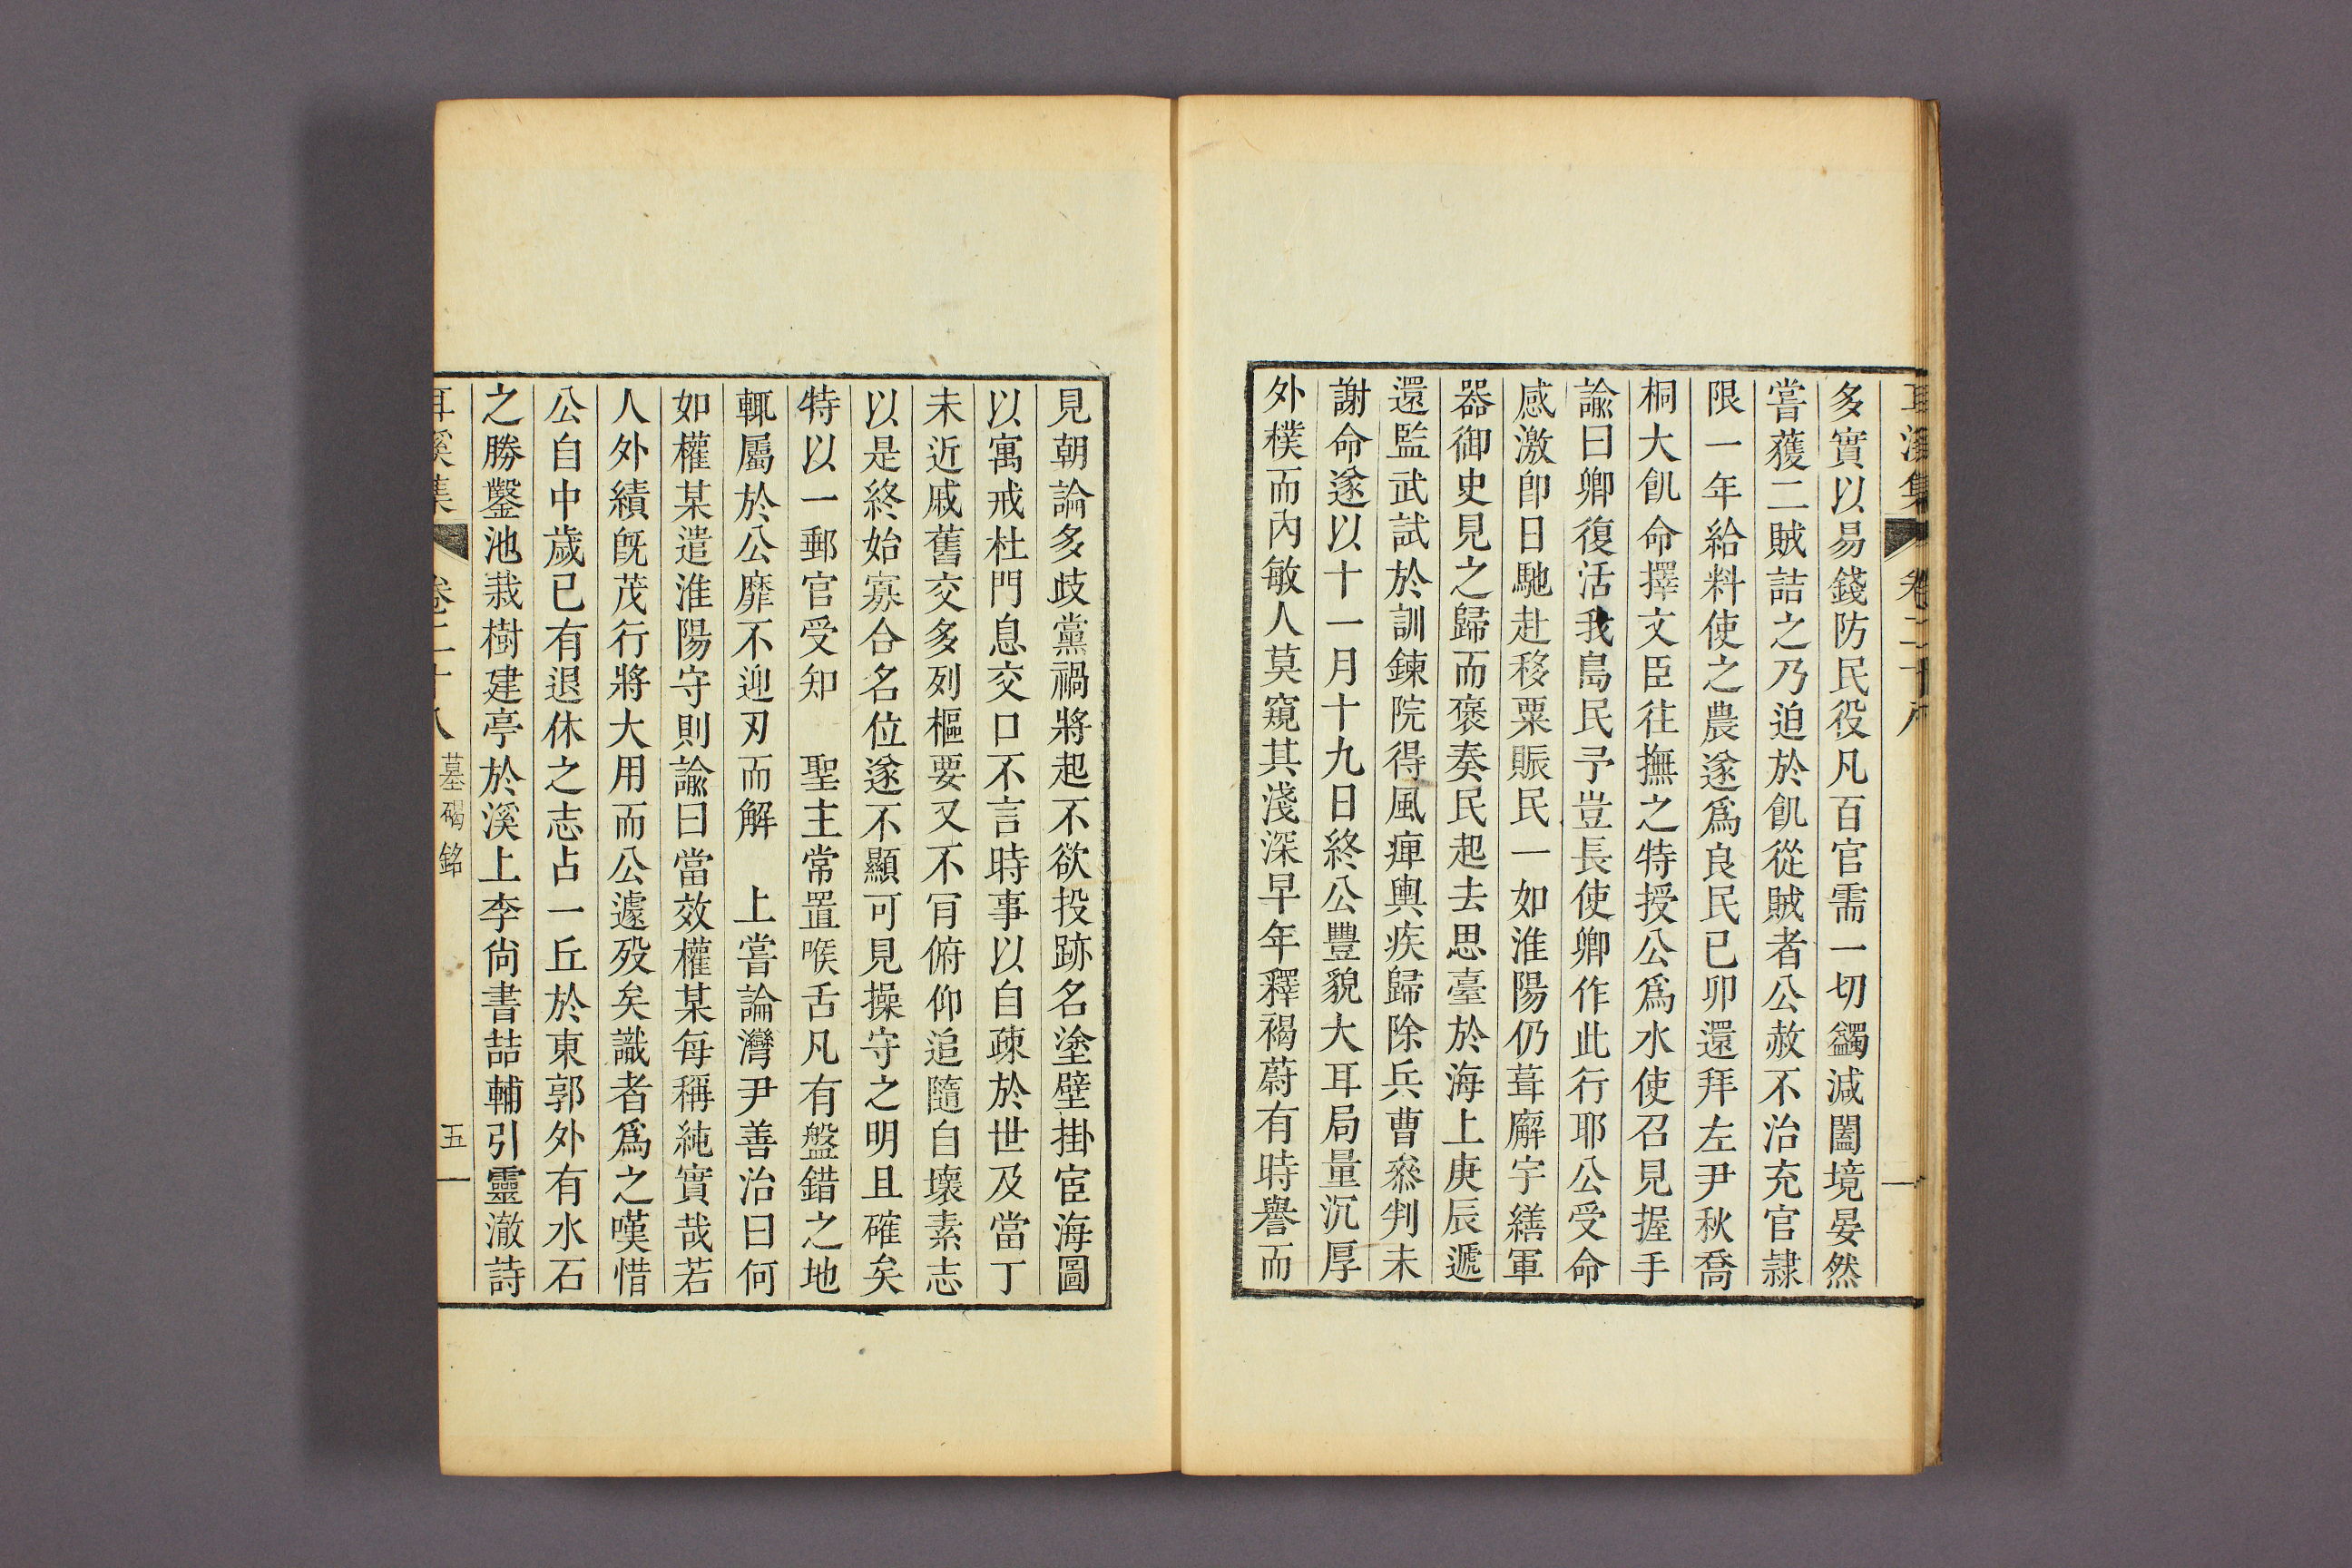 耳溪集 卷二十八
多實以易錢防民役凡百官需一切蠲減闔境晏然
嘗獲二賊詰之乃迫於飢從賊者公赦不治充官隷
限一年給料使之農遂爲良民已卯還拜左尹秋喬
桐大飢命擇文臣往撫之特授公爲水使召見握手
諭曰卿復活我島民予豈長使卿作此行耶公受命
感激卽日馳赴移粟賑民一如淮陽仍葺廨宇繕軍
器御史見之歸而褒奏民起去思臺於海上庚辰遞
還監武試於訓鍊院得風痺輿疾歸除兵曹叅判未
謝命遂以十一月十九日終公豐貌大耳局量沉厚
外樸而內敏人莫窺其淺深早年釋褐蔚有時譽而
見朝論多歧黨禍將起不欲投跡名塗壁掛宦海圖
以寓戒杜門息交口不言時事以自疎於世及當丁
未近戚舊交多列樞要又不肎俯仰追隨自壞素志
以是終始寡合名位遂不顯可見操守之明且確矣
特以一郵官受知　聖主常置喉舌凡有盤錯之地
輒屬於公靡不迎刃而解　上嘗論灣尹善治曰何
如權某遣淮陽守則諭曰當效權某每稱純實哉若
人外績旣茂行將大用而公遽歿矣識者爲之嘆惜
公自中歲已有退休之志占一丘於東郭外有水石
之勝鑿池栽樹建亭於溪上李尙書喆輔引靈澈詩
耳溪集 卷二十八 墓碣銘 五一